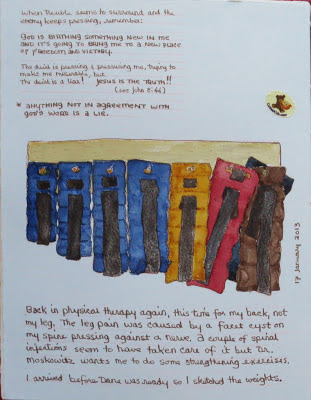 When trouble seems to surround and the
enemy keeps pressing, remember:
GOD IS BIRTHING SOMETHING NEW IN ME
AND IT'S GOING TO BRING ME TO A NEW PLACE
OF FREEDOM AND VICTORY.
The devil is pressing & pressuring me, trying to
make me miserable, but
The devil is a liar! JESUS IS THE TRUTH!!
(see John 8:44)
* ANYTHING NOT IN AGREEMENT WITH
GOD'S WORD IS A LIE.
17 January 2013
Back in physical therapy again, this time for my back, not
my leg. The leg pain was caused by a facet cyst on
my spine pressing against a nerve. A couple of spinal
injections seem to have taken care of it but Dr.
Moskowitz wants me to do some strengthening exercises.
I arrived before Dane was ready so I sketched the weights.